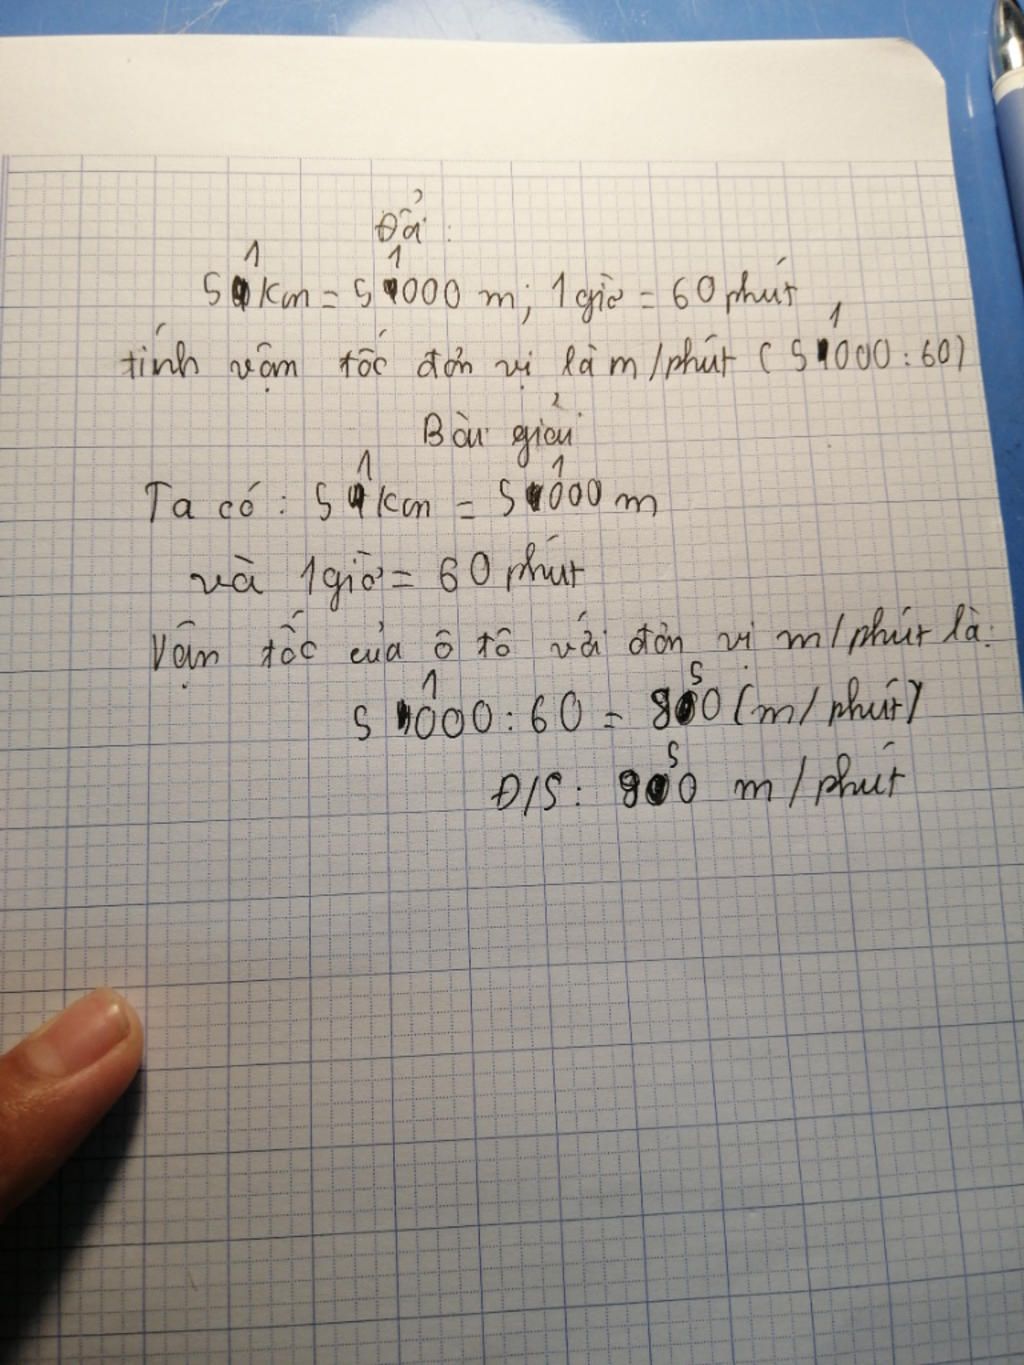 Đổi:
51 km = 51000 m; 1 giờ = 60 phút
tính vận tốc đơn vị là m/phút (51000:60)
Bài giải
Ta có: 51 km = 51000 m
và 1 giờ = 60 phút
Vận tốc của ô tô với đơn vị m/phút là:
51000:60 = 850 (m/phút)
Đ/S: 850 m/phút